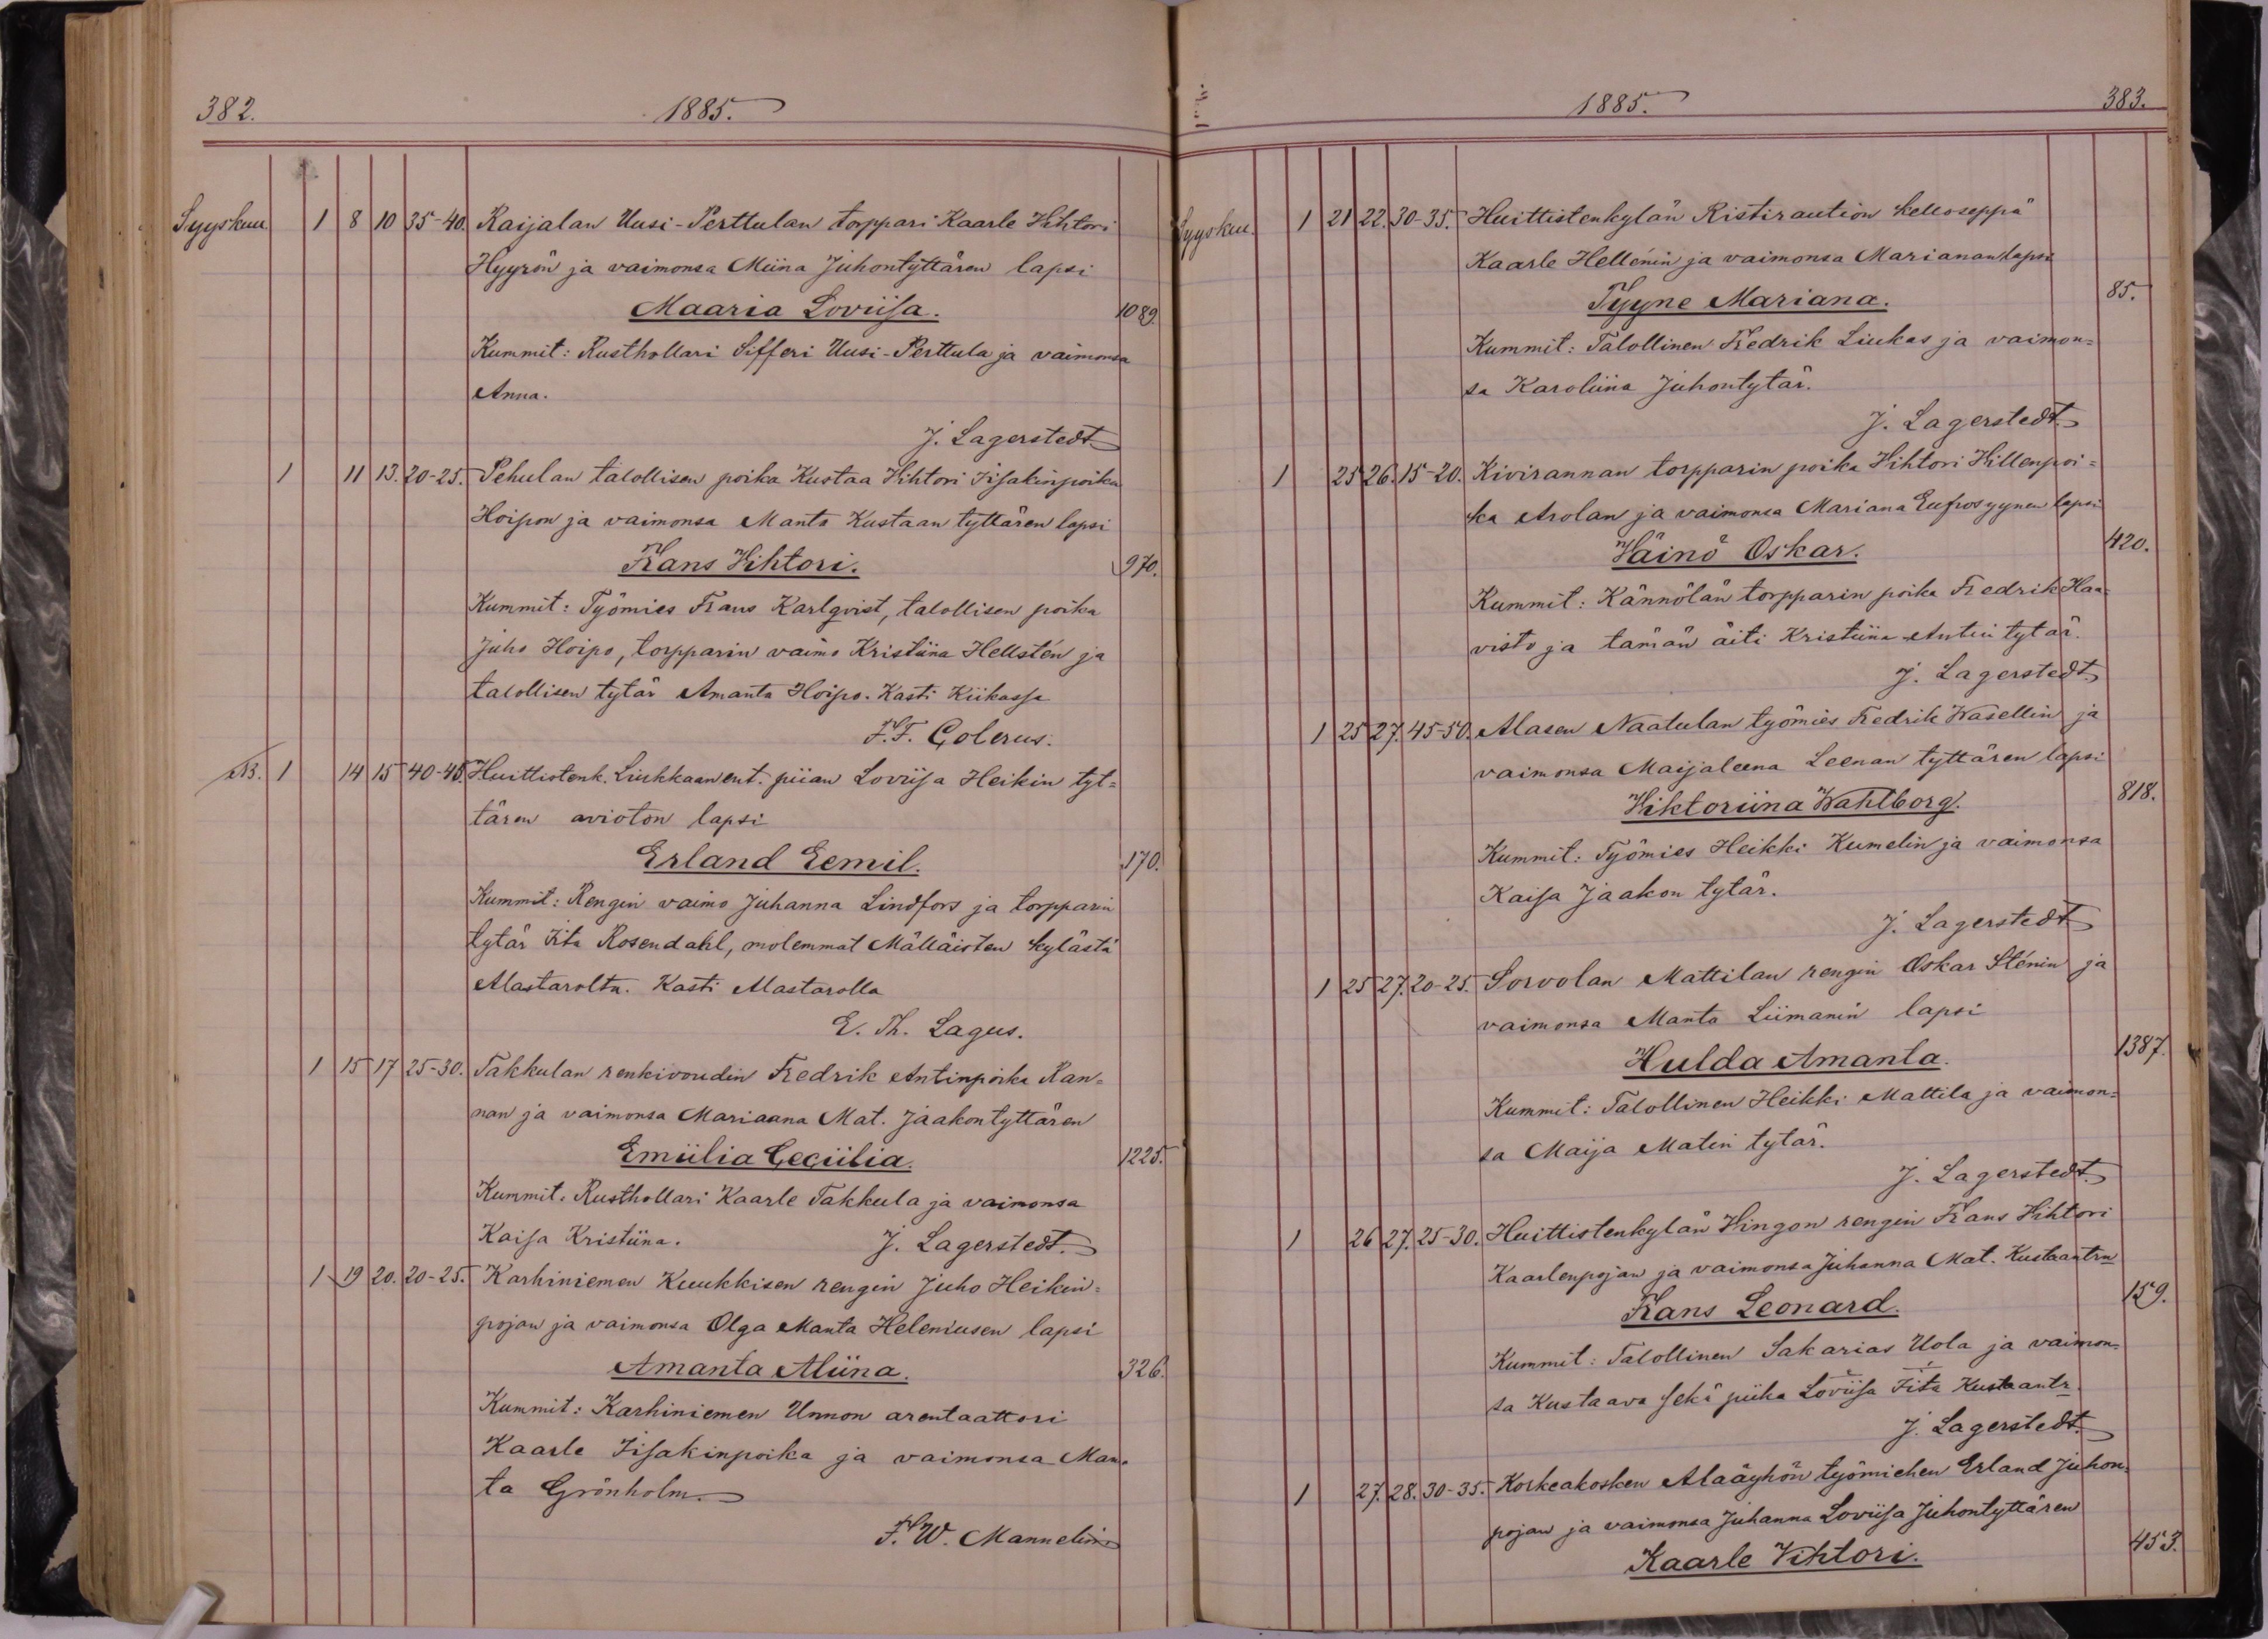 382.
1885.
Syyskuu 1 8 10 35-40. Raijalan Uusi-Perttulan torppari Kaarle Wihtori
Hyyrön ja vaimonsa Miina Juhontyttären lapsi
Maaria Loviisa. 1089.
Kummit: Rusthollari Sifferi Uusi-Perttula ja vaimonsa
Anna.
J. Lagerstedt
1 11 13. 20-25. Pehulan talollisen poika Kustaa Wihtori Iisakinpoika
Hoipon ja vaimonsa Manta Kustaan tyttären lapsi
Frans Wihtori. 970.
Kummit: Työmies Frans Karlqvist, talollisen poika
Juho Hoipo, torpparin vaimo Kristiina Hellstén ja
talollisen tytär Amanta Hoipo. Kasti Kiikassa
F. F. Golerus.
AB. 1 14 15 40-45. Huittistenk. Liukkaan ent. piian Loviisa Heikin tyt=
tären avioton lapsi
Erland Eemil. 170.
Kummit: Rengin vaimo Juhanna Lindfors ja torpparin
tytär Iita Rosendahl, molemmat Mälläisten kylästä
Alastarolta. Kasti Alastarolla
E. Th. Lagus.
1 15 17 25-30. Takkulan renkivoudin Fredrik Antinpoika Ran=
nan ja vaimonsa Mariaana Mat. Jaakontyttären
Emiilia Ceciilia. 1225.
Kummit. Rusthollari Kaarle Takkula ja vaimonsa
Kaisa Kristiina. J. Lagerstedt.
1 19 20. 20-25. Karhiniemen Kuukkisen rengin Juho Heikin=
pojan ja vaimonsa Olga Manta Heleniusen lapsi
Amanta Aliina. 326.
Kummit: Karhiniemen Unnon arentaattori
Kaarle Iisakinpoika ja vaimonsa Man=
ta Grönholm.
F. W. Mannelin
1885.
383.
Syyskuu. 1 21 22. 30-35. Huittistenkylän Ristiraution kelloseppä
Kaarle Hellénin ja vaimonsa Marianan lapsi
Tyyne Mariana. 85.
Kummit: Talollinen Fredrik Liukas ja vaimon=
sa Karoliina Juhontytär.
J. Lagerstedt.
1 25 26. 15-20. Kivirannan torpparin poika Wihtori Willenpoi=
ka Arolan ja vaimonsa Mariana Eufrosyynen lapsi
Wäinö Oskar. 420.
Kummit: Kännölän torpparin poika Fredrik Haa=
visto ja tämän äiti Kristiina Antin tytär.
J. Lagerstedt.
1 25 27. 45-50. Alasen Naatulan työmies Fredrik Wasellin ja
vaimonsa Maijaleena Leenan tyttären lapsi
Wiktoriina Wahlborg. 818.
Kummit: Työmies Heikki Kumelin ja vaimonsa
Kaisa Jaakon tytär.
J. Lagerstedt
1 25 27. 20-25. Sorvolan Mattilan rengin Oskar Sténin ja
vaimonsa Manta Liimanin lapsi
Hulda Amanta. 1387.
Kummit: Talollinen Heikki Mattila ja vaimon=
sa Maija Matin tytär.
J. Lagerstedt.
1 26 27. 25-30. Huittistenkylän Wingon rengin Frans Wihtori
Kaarlenpojan ja vaimonsa Juhanna Mat. Kustaantrn
Frans Leonard. 159.
Kummit: Talollinen Sakarias Uola ja vaimon=
sa Kustaava sekä piika Loviisa Iita Kustaantr.
J. Lagerstedt.
1 27. 28. 30-35. Korkeakosken Alaäyhön työmiehen Erland Juhon=
pojan ja vaimonsa Juhanna Loviisa Juhontyttären
Kaarle Vihtori. 453.